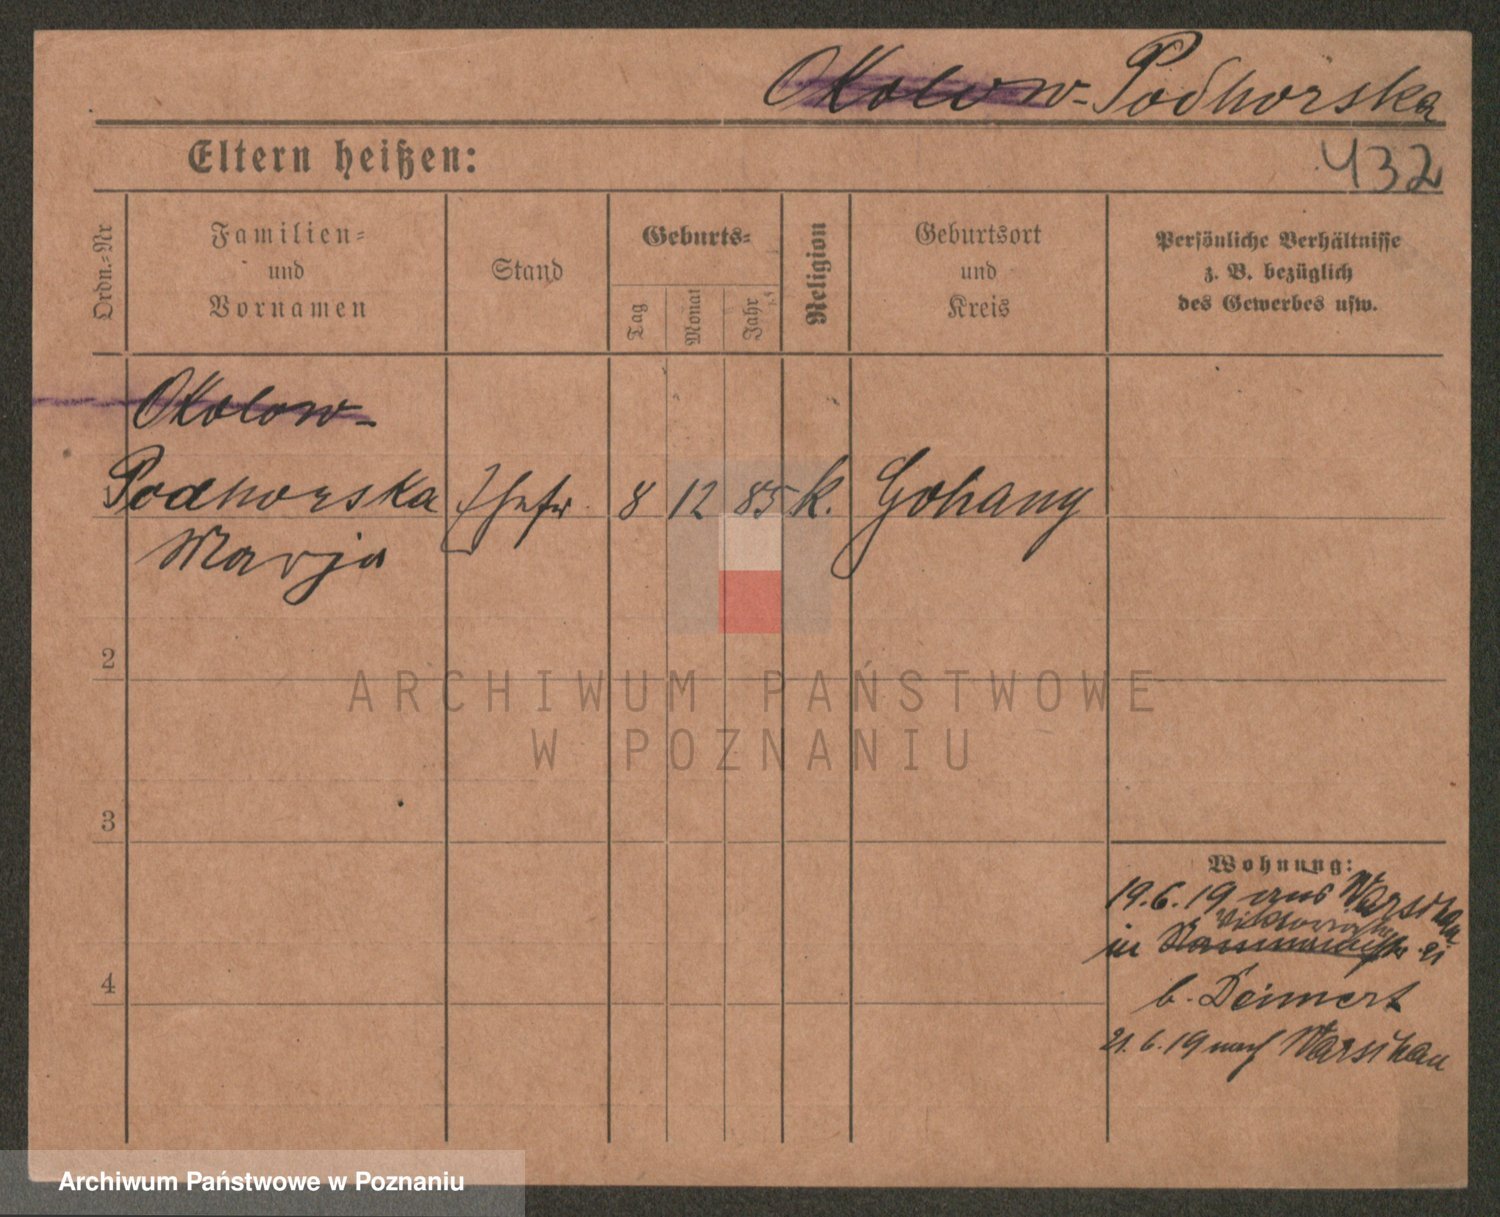 Okolow-Podhorska
Eltern heißen:
432
Ordn.-Nr
Familien-
und
Vornamen
Stand
Geburts-
Tag
Monat
Jahr
Religion
Geburtsort
und
Kreis
Persönliche Verhältnisse
z. B. bezüglich
des Gewerbes usw.
Okolow-
Podhorska Ehefr 8 12 85 k. Gohany
Marja
2
3
4
Wohnung:
19.6.19 aus Warschau
Viktoriastr
in 21
b. Deimert
21.6.19 nach Warschau
ARCHIWUM PAŃSTWOWE
W POZNANIU
Archiwum Państwowe w Poznaniu